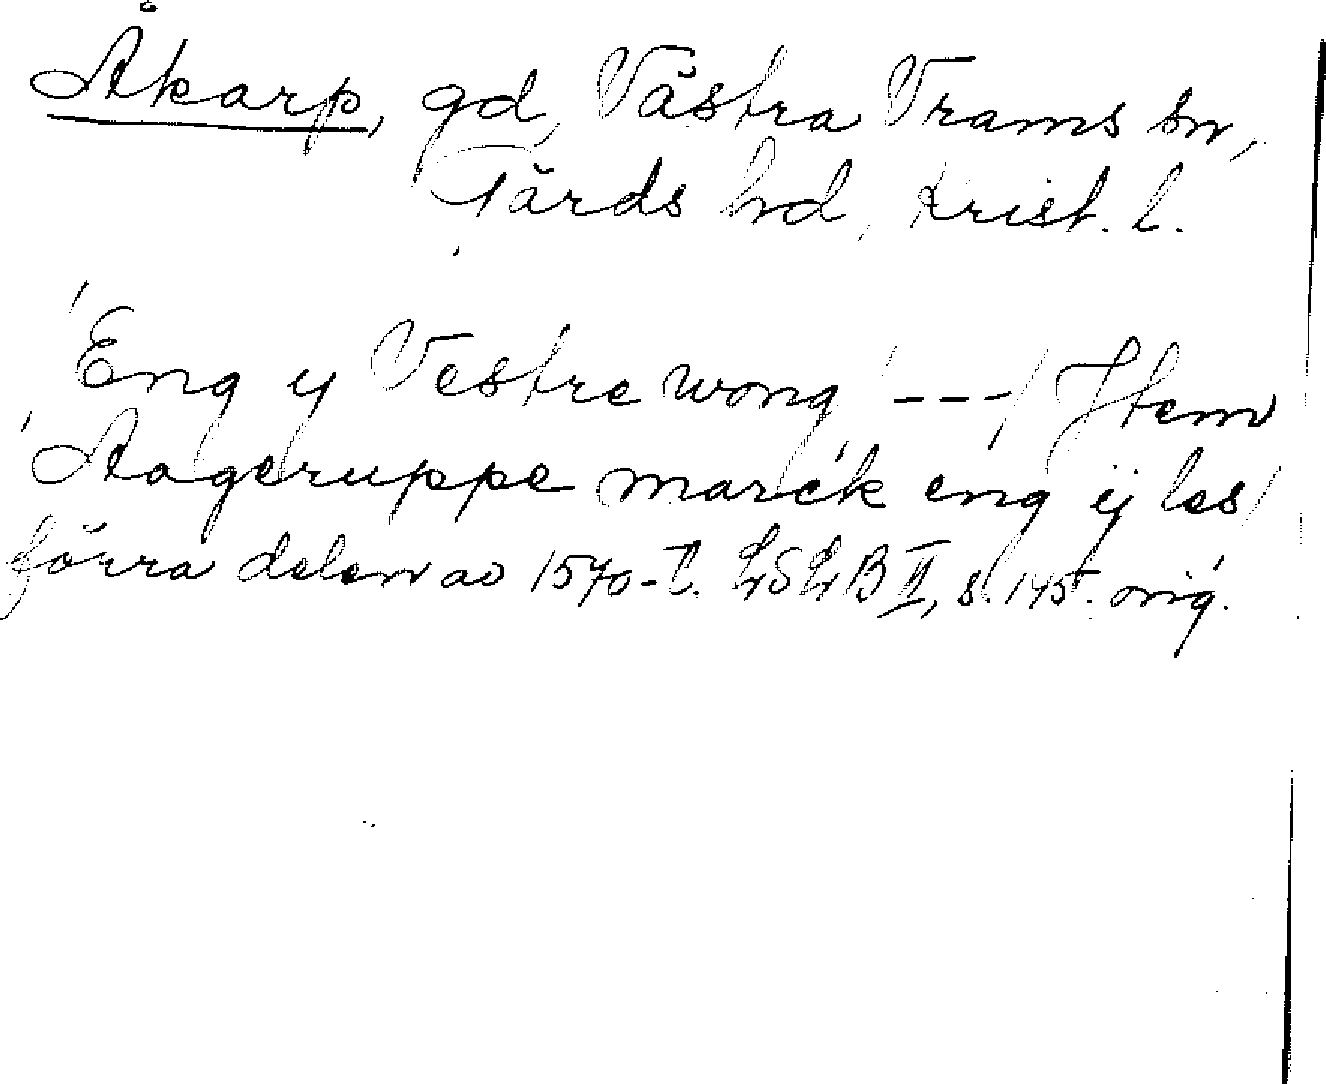 Åkarp, gd, Västra Vrams sn,
Gärds hd, Krist. l.
'Eng y Vestre wong' ---/ Item
'Aageruppe marck eng ij les'
förra delen av 1570-t. LSLB II, s. 145. orig.